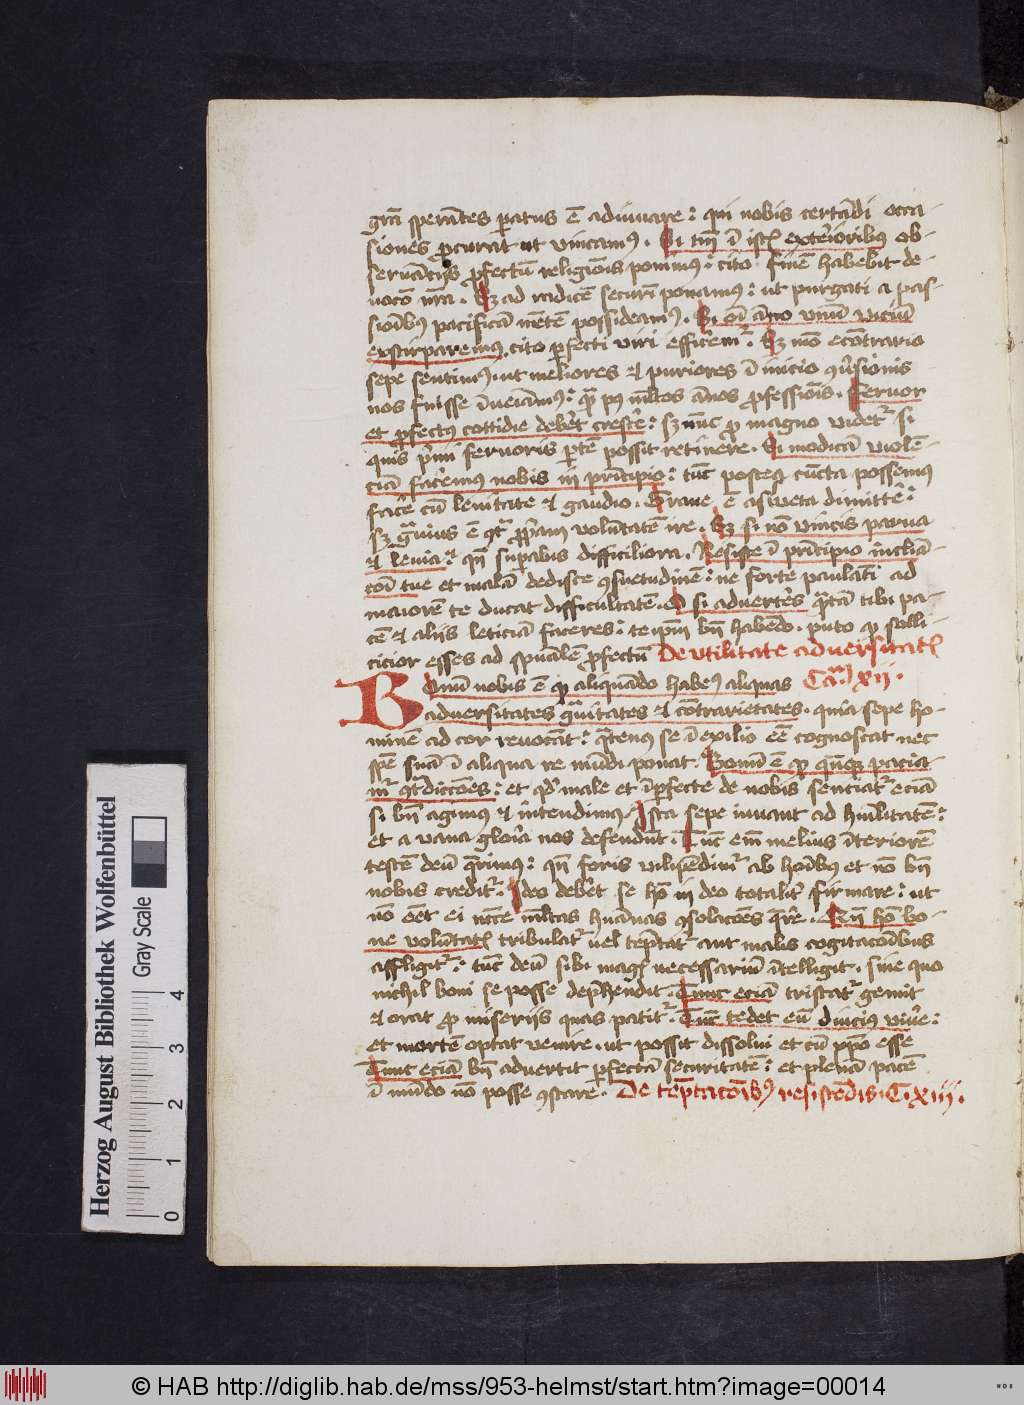 grã sperãtes paratus ē adiuuare : qui nobis certãdi occa-
siones ꝓcurat ut vincamꝰ . Si tm̄ ī istꝭ exterioribꝰ ob-
seruãcijs ꝓfectū religiõis ponimꝰ : cito finē habebit de-
uocō nr̄a . Sꝫ ad radicē securī ponamꝰ : ut purgati a pas-
sioībꝰ pacificã mētē possideamꝰ . Si oī ãno vnū viciū
exstirparemꝰ . cito ꝑfecti viri efficeremꝰ . Sꝫ mō econtrario
sepe sentimꝰ . ut meliores et puriores ī inicio ꝯuersionis
nos fuisse īueiãmꝰ : quã pꝰ multos ãnos ꝓfessiõis . Feruor
et ꝓfectꝰ cottidie deberet crescere : sꝫ nūc ꝓ magno videtur si
quis primi feruoris ptē possit retinere . Si modicã violē-
ciã faceremus nobis in principio : tūc postea cūcta possemꝰ
facere cū leuitate et gaudio . Graue ē asweta dimittere :
sꝫ grauius ē ꝯtra ꝓpriam volūtatē ire . Sꝫ si nō vincis parua
et leuia : qn̄ supabis difficiliora . Resiste ī principio īcliã-
cōi tue et malã dedisce ꝯsuetudinē : ne forte paulatī ad
maiorē te ducat difficultatē . O si aduerteres quãtã tibi pa-
cē et aliis leticiã faceres : teipm̄ bn̄ habendo . puto ꝙ solli-
cicior esses ad spūalē ꝓfectū De vtilitate aduersitatꝭ
Bonū nobis ē ꝙ aliquãdo habemꝰ aliquas Ca. xii .
aduersitates grauitates et cōtrarietates . quia sepe ho-
minē ad cor reuocãt : quatenꝰ se ī exilio eē cognoscat nec
spē suã ī aliqua re mūdi ponat . Bonū ē ꝙ qn̄qꝫ pacia-
mur ꝯtradictões : et qd male et īperfecte de nobis senciatur eciã
si bn̄ agimus et intendimꝰ . Ista sepe iuuant ad humilitatē :
et a vana gloria nos defendunt . Tūc em̄ melius īteriorē
testē deū querimꝰ : qn̄ foris vilipendimur ab hoībus et nō bn̄
nobis creditur . Ideo deberet se hō in deo totaliter firmare : ut
nō eēt ei necē multas hūanas ꝯsolacões querere . Cū hō bo-
ne volūtatꝭ tribulatur uel temptatur aut malis cogitacoībus
affligitur : tūc deū sibi magꝭ necessariū ītelligit . sine quo
nichil boni se posse depr̄hendit . Tunc eciã tristatur gemit
et orat ꝓ miseriis quas patitur . Tūc tedet eū diucius viuere :
et mortē optat venire . ut possit dissolui et cū xp̄o esse
Tunc eciã bn̄ aduertit ꝑfectã securitatē : et plenã pacē
ī mūdo nō posse ꝯstare . De temptacoībꝰ resistēdis . C. xiii .
Herzog August Bibliothek Wolfenbüttel
Gray Scale
0 1 2 3 4
© HAB http://diglib.hab.de/mss/953-helmst/start.htm?image=00014